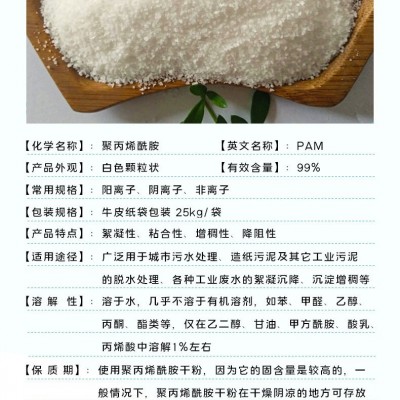 【化学名称】：聚丙烯酰胺 【英文名称】：PAM
【产品外观】：白色颗粒状 【有效含量】：99%
【常用规格】：阳离子、阴离子、非离子
【包装规格】：牛皮纸袋包装 25kg/袋
【产品特点】：絮凝性、粘合性、增稠性、降阻性
【适用途径】：广泛用于城市污水处理、造纸污泥及其它工业污泥
的脱水处理、各种工业废水的絮凝沉降、沉淀增稠等
【溶 解 性】：溶于水，几乎不溶于有机溶剂，如苯、甲醛、乙醇、
丙酮、酯类等，仅在乙二醇、甘油、甲方酰胺、酸乳、
丙烯酸中溶解1%左右
【保 质 期】：使用聚丙烯酰胺干粉，因为它的固含量是较高的，一
般情况下，聚丙烯酰胺干粉在干燥阴凉的地方可存放